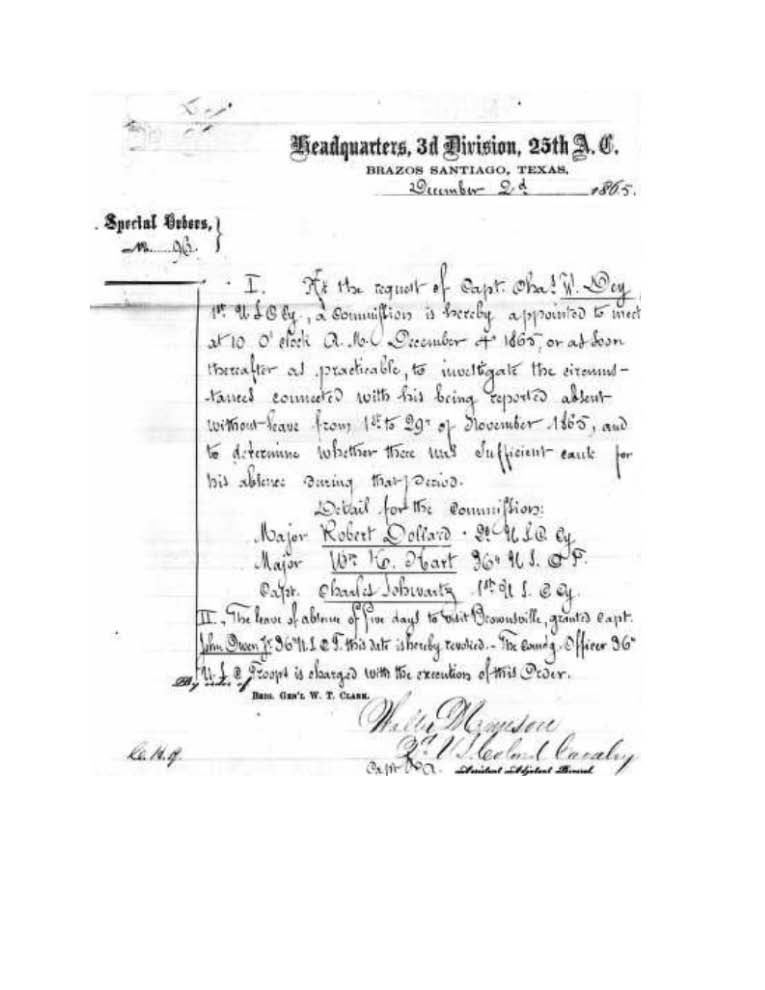 Headquarters, 3d Division, 25th A. C.
BRAZOS SANTIAGO, TEXAS,
December 2d 1865.
Special Orders,
No. 96.
I. At the request of Capt. Chas. W. Dey
1st U S C Cy., a Commission is hereby appointed to meet
at 10 O'clock A. M. December 4" 1865, or as soon
thereafter as practicable, to investigate the circums-
tances connected with his being reported absent
without leave from 1st to 29" of November 1865, and
to determine whether there was sufficient cause for
his absence during that period.
Detail for the Commission:
Major Robert Dollard . 2d U S C Cy.
Major Wm. H. Hart 36" U S. C T.
Capt. Charles Schwartz 1st U S. C Cy.
II., The leave of absence of five days to visit Brownsville, granted Capt.
John Owen Jr 36" U S C T. this date is hereby revoked. - The Comd'g. Officer 36"
U. S. C Troops is charged with the execution of this Order.
By order of
BRIG. GEN'L W. T. CLARK.
2d U.S. Colored Cavalry
Capt & A. Assistant Adjutant General